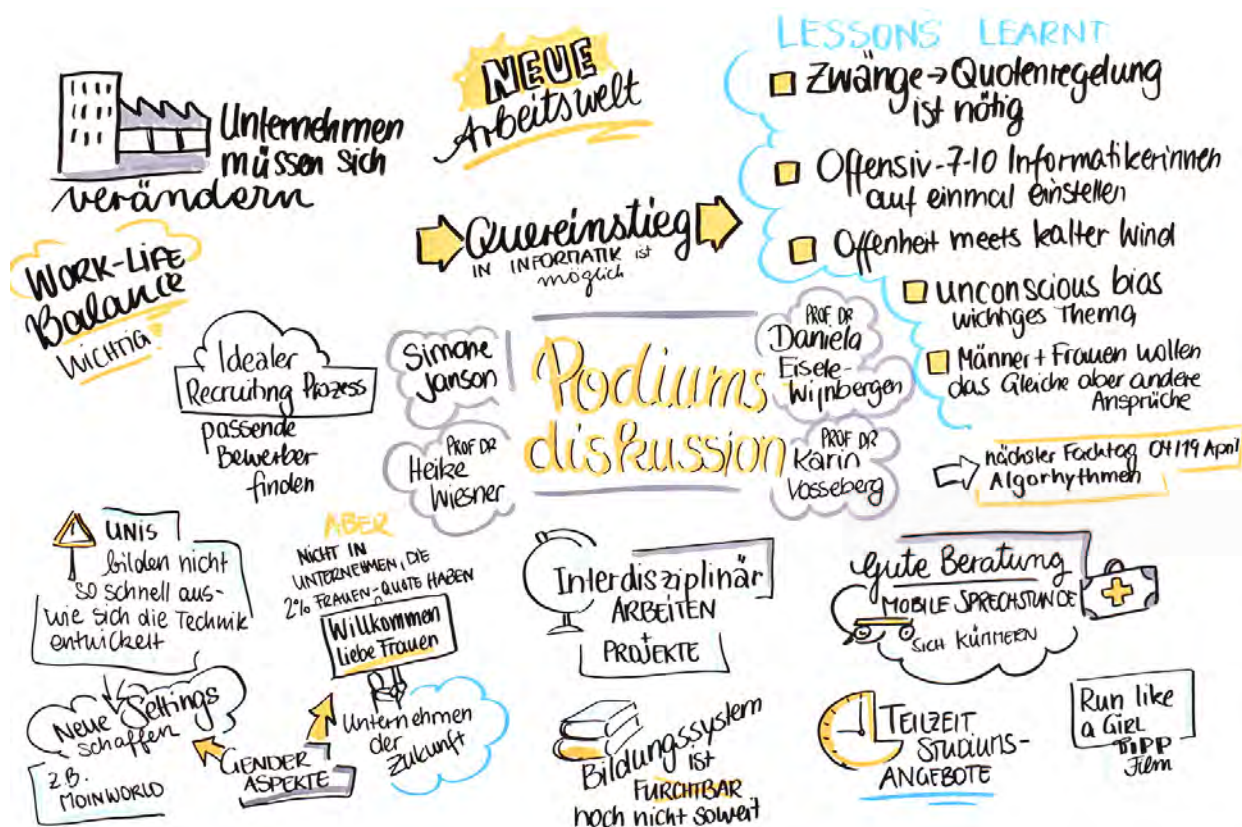 Unternehmen
müssen sich
verändern
NEUE
Arbeitswelt
LESSONS LEARNT
Zwänge → Quotenregelung
ist nötig
Offensiv - 7-10 Informatikerinnen
auf einmal einstellen
Offenheit meets kalter Wind
unconscious bias
wichtiges Thema
Männer + Frauen wollen
das Gleiche aber andere
Ansprüche
Quereinstieg
IN INFORMATIK ist
möglich
WORK-LIFE
Balance
WICHTIG
Idealer
Recruiting Prozess
passende
Bewerber
finden
Simone
Janson
PROF DR
Heike
Wiesner
Podiums
diskussion
PROF DR
Daniela
Eisele-
Wijnbergen
PROF DR
Karin
Vosseberg
nächster Fachtag 04/19 April
Algorhythmen
UNIS
bilden nicht
so schnell aus-
wie sich die Technik
entwickelt
Neue Settings
schaffen
z.B.
MOINWORLD
GENDER
ASPEKTE
ABER
NICHT IN
UNTERNEHMEN, DIE
2% FRAUEN-QUOTE HABEN
Willkommen
liebe Frauen
Unternehmen
der
Zukunft
Interdisziplinär
ARBEITEN
+
PROJEKTE
Bildungssystem
ist
FURCHTBAR
noch nicht soweit
Gute Beratung
MOBILE SPRECHSTUNDE
SICH KÜMMERN
TEILZEIT
STUDIUMS-
ANGEBOTE
Run like
a Girl
TIPP
Film